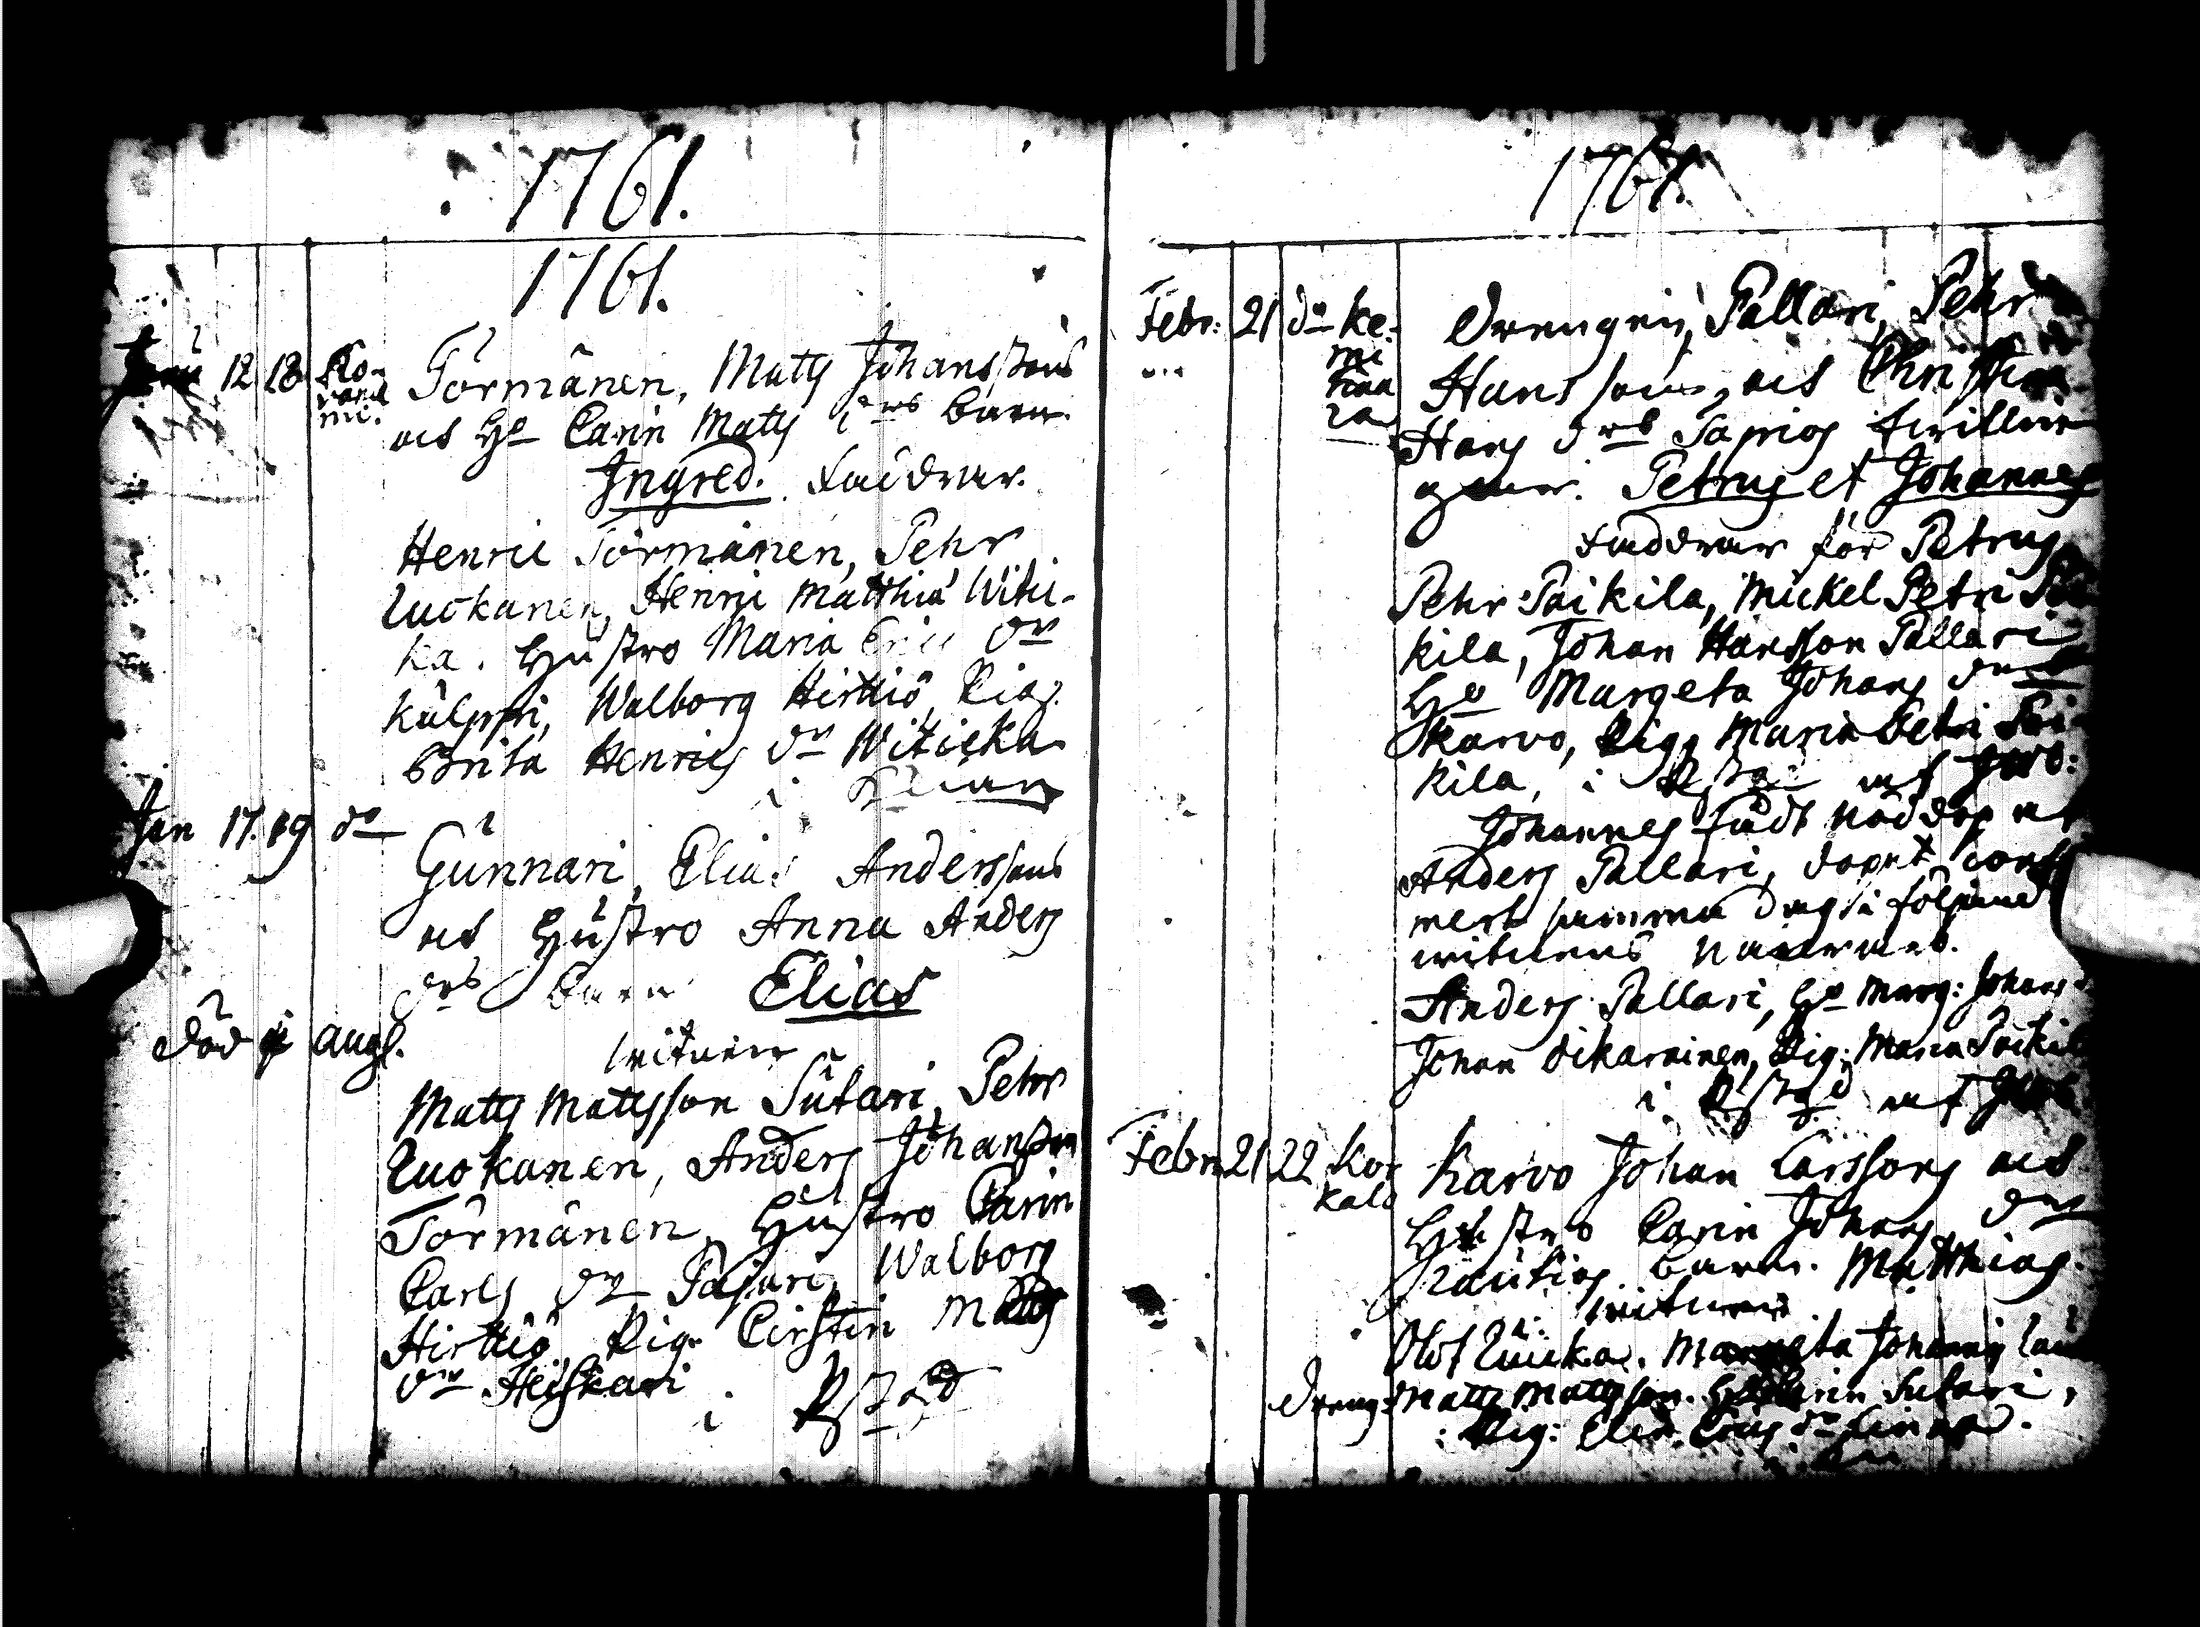 1761.
1761.
Jan 12 18 Ro-
vanie
mi.
Törmänen, Matts Johanssons
och Ho Carin Matts drs barn
Ingred. Faddrar.
Henric Törmänen, Pehr
Luokanen, Henric Matthiæ Witic-
ka. Hustro Maria Eric dr
Külppi, Walborg Hirttiö, Pig.
Brita Henrics dr Witicka
i
Jan 17. 19 do
Gunnari, Elias Anderssons
och Hustro Anna Anders
drs barn Elias
död i Aug.
witnen
Matts Mattsson Sutari, Pehr
Luokanen, Anders Johansson
Törmänen, Hustro Carin
Carls dr Pajari, Walborg
Hirttiö, Pig. Cirstin Matts
dr Heiskari
i
1761.
Febr: 21 do Ke-
mi
haa
ra
Drengen, Pallari, Pehr
Hanssons, och Christin
Hans drs Saprios twillin
gar. Petrus et Johannes
Faddrar för Petrus
Pehr Paikila, Mickel Petri Pai
kila, Johan Hansson Pallari
Ho Margeta Johans dr
Karvo, Pig. Maria Petri Pai
kila, i
Johannes fådt nöddop af
Anders Pallari, dopet conf
samma dag i följande
witnens närwaro.
Anders Pallari, Ho Marg: Johans
Johan Oikarainen, Pig: Maria Paikil
i
Febr 21 22 Kor
kalo
Karvo Johan Larssons och
Hustro Carin Johans drs
Rautios barn. Matthias.
witnen
Olof Luicka. Margeta Johans
Dreng: Matts Mattsson. Carin Sutari,
Pig: